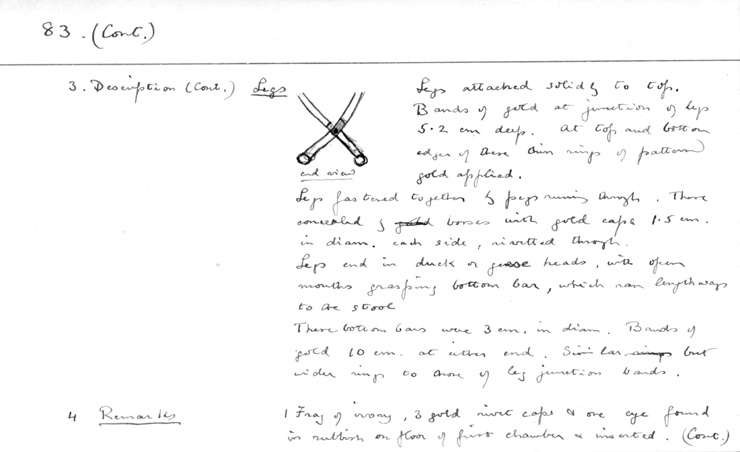 83. (Cont.)
3. Description (Cont.) Legs
end view
Legs attached solidly to top.
Bands of gold at junction of legs
5.2 cm deep. At top and bottom
edges of these thin rings of pattern
gold applied.
Legs fastened together by pegs running through. These
concealed by gold bosses with gold caps 1.5 cm.
in diam. each side, rivetted through.
Legs end in duck or geese heads, with open
mouths grasping bottom bar, which ran lengthways
to the stool
These bottom bars were 3 cm. in diam. Bands of
gold 10 cm. at either end. Similar but
wider rings to those of leg junction bands.
4 Remarks
1 Frag of ivory, 3 gold rivet caps & one eye found
in rubbish on floor of first chamber & inserted. (Cont.)